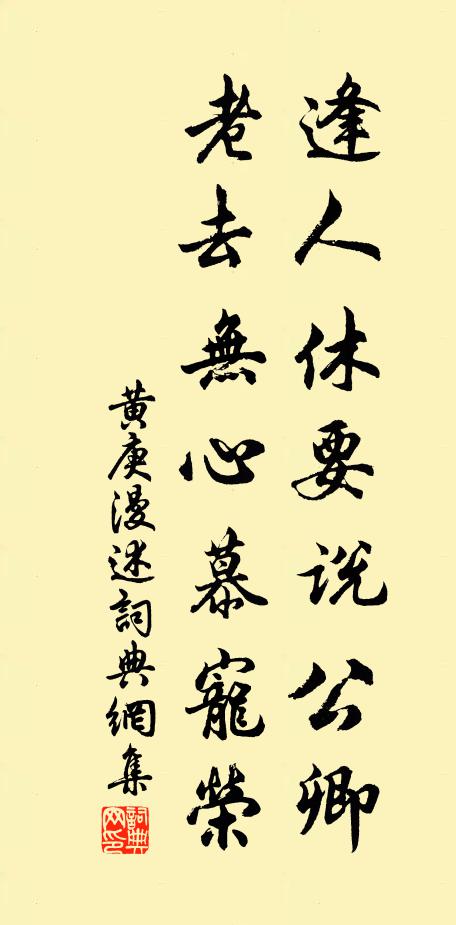 逢人休要說公卿
老去無心慕寵榮
黄庚漫述詞典網集
詞典网印